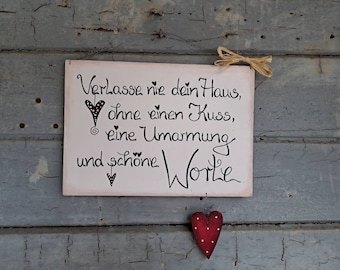 Verlasse nie dein Haus,
ohne einen Kuss,
eine Umarmung
und schöne Worte